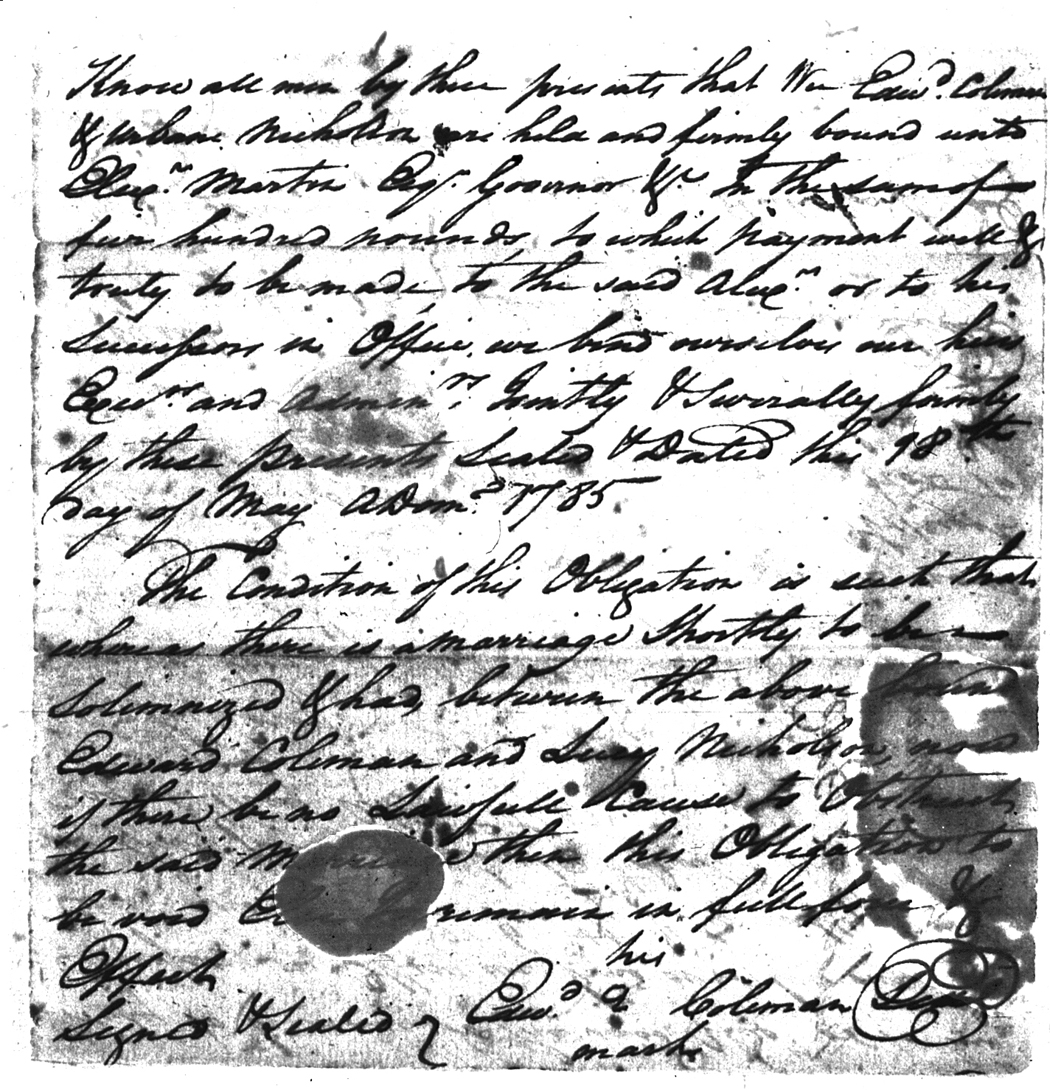 Know all men by these presents that We Edwd. Coleman
& Urbane Nicholson are held and firmly bound unto
Elexr. Martin Esqr. Governor &c. In the sum of
five hundred pounds, to which payment well &
truly to be made, to the said Alexr. or to his
Successors in Office, we bind ourselves our heirs
Execurs. and Adminrs. Jointly & Severally firmly
by these presents Sealed & Dated this 18th
day of May ADom. 1785
The Condition of this Obligation is such that
whereas there is a marriage Shortly to be
Solemnized & had, between the above boun
Edward Coleman and Lucy Nicholson, now
if there be no Lawfull Cause to Obstruct
the said then this Obligation to
be void remain in full force &
Effect
his
Signed & Sealed Edwd. Coleman Seal
mark